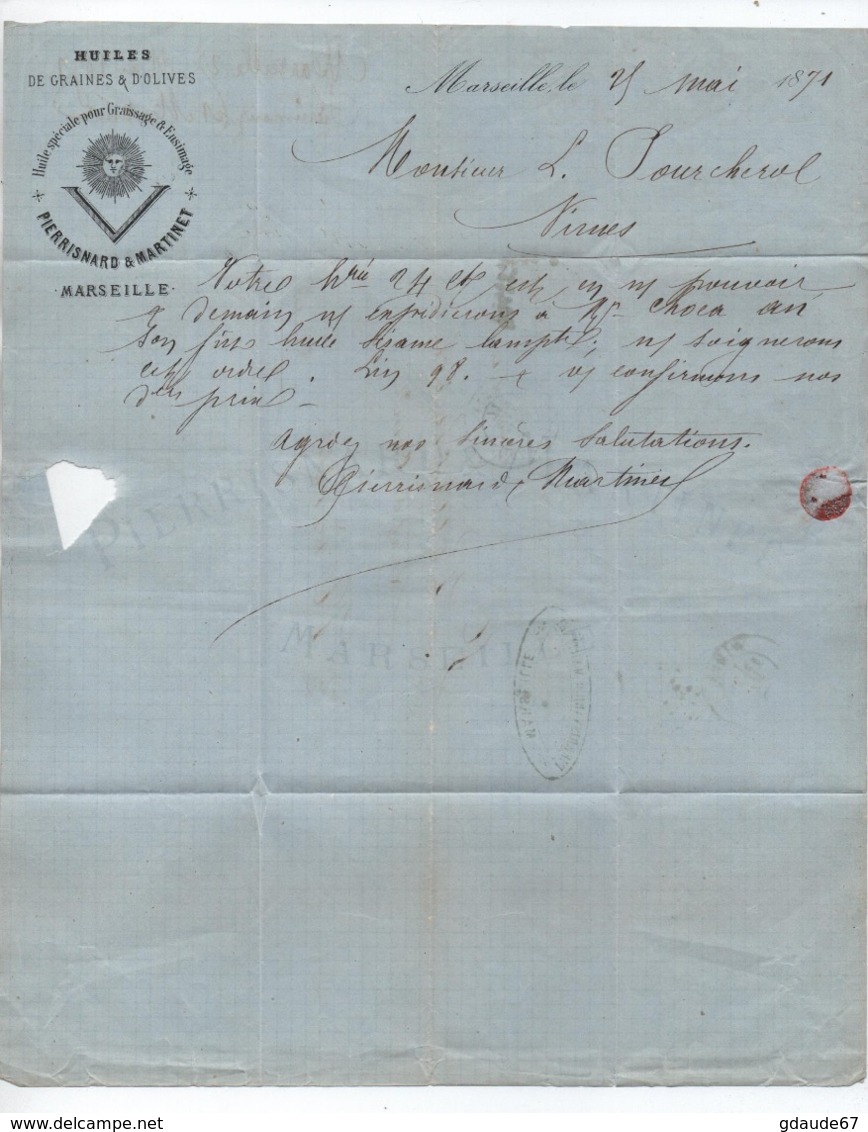 HUILES
DE GRAINES & D'OLIVES
Huile spéciale pour Graissage & Ensimage
PIERRISNARD & MARTINET
MARSEILLE
Marseille, le 25 mai 1871
Monsieur L. Pourcherol
Nimes
Votre hrée 24 ct est en ns pouvoir
& demain ns expédierons à Mr. Choca an
son fûts huile Sésame lampte; ns soignerons
cet ordre. Lin 98. + vs confirmons nos
prix
Agréez nos sincères salutations.
Pierrisnard & Martinet
PIERRISNARD & MARTINET
MARSEILLE
MARSEILLE
delcampe.net
gdaude67